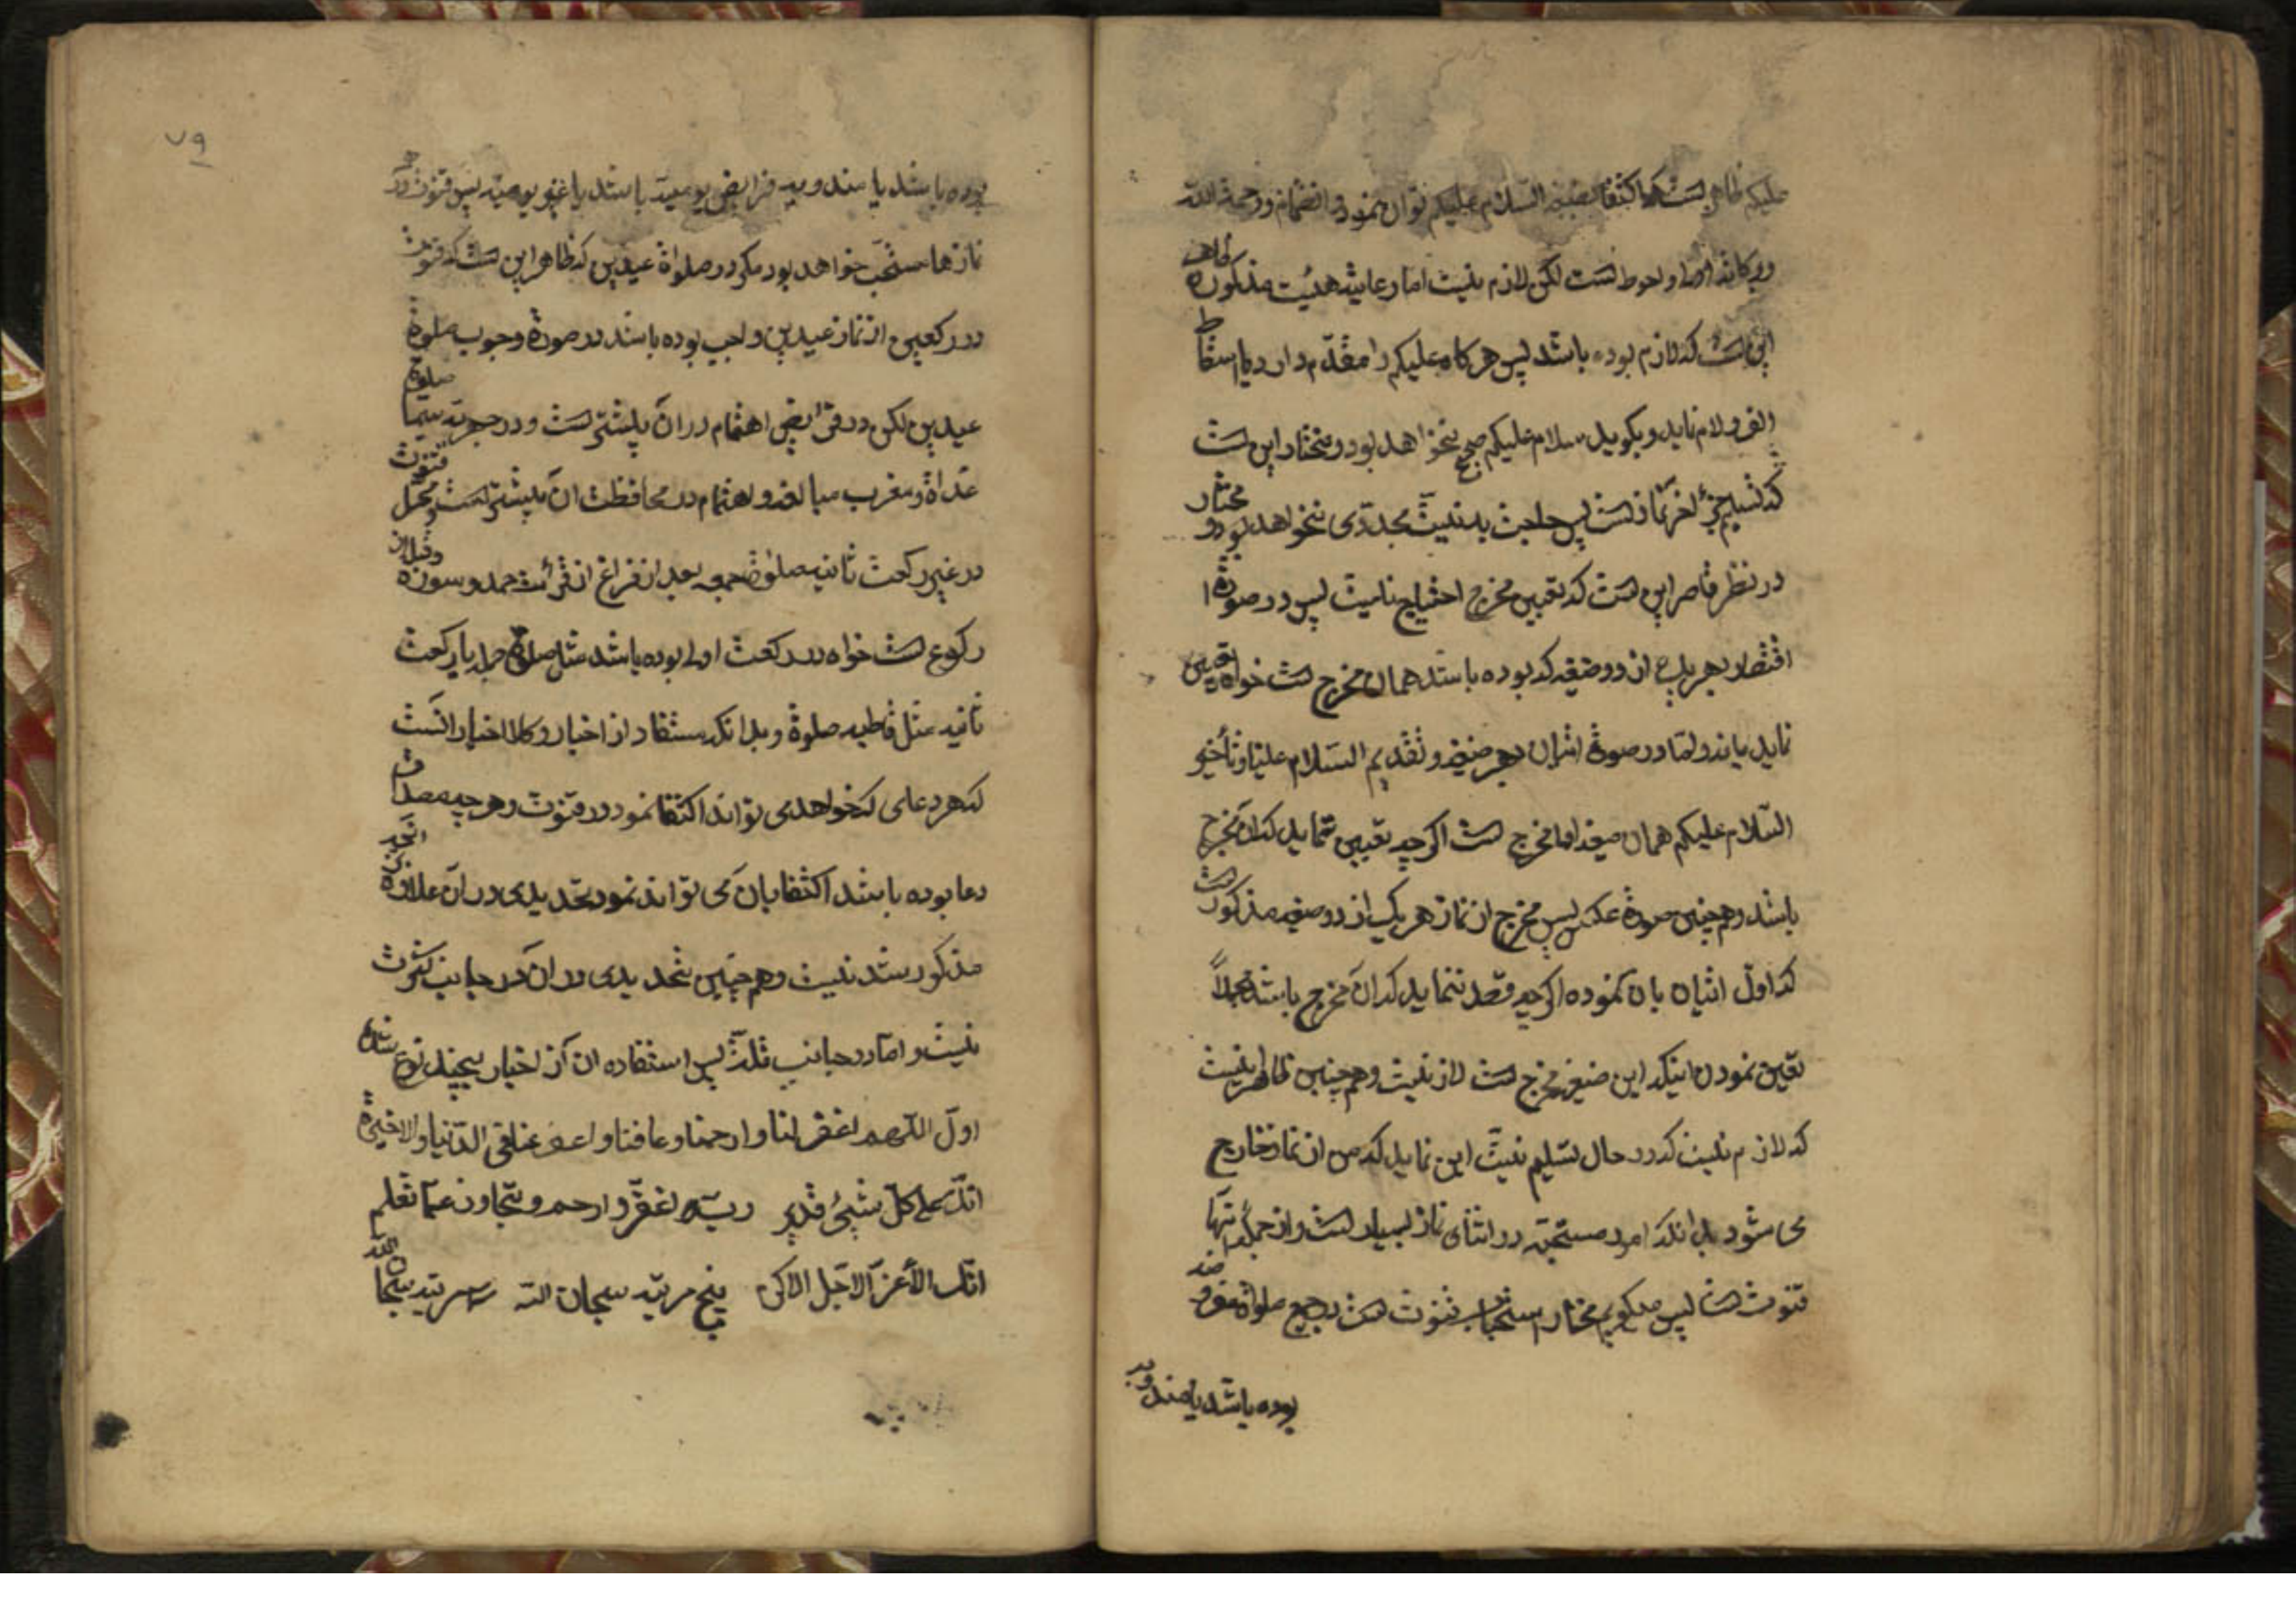 علیکم ظاهر است که اکتفا بصیغه السلام علیکم توان نمود و انضمام و رحمة الله
وبرکاته اولی و احوط است لکن لازم نیست اما رعایت هیئت مذکوره ظاهر
این است که لازم بوده باشد پس هر کاه علیکم را مقدم دارد یا اسقاط
الف و لام نماید و بکوید سلام علیکم صحیح نخواهد بود و مختار این است
که تسلیم جزء اخر نماز است پس حاجت به نیت مجددی نخواهد بود و مختار
در نظر قاصر این است که تعیین مخرج احتیاج نیست پس در صورة
اقتصار بهر یک از دو صیغه که بوده باشد همان مخرج است خواه تعیین
نماید یا نه و اما در صورة اتیان بهر دو صیغه و تقدیم السلام علینا و تأخیر
السلام علیکم همان صیغه اولی مخرج است اکر چه تعیین نماید که ان مخرج
باشد و هم چنین صورة عکس پس مخرج از نماز هر یک از دو صیغه مذکوره است
که اول اتیان بان نموده اکر چه قصد ننماید که ان مخرج باشد مجملاً
تعیین نمودن اینکه این صیغه مخرج است لازم نیست و هم چنین ظاهر اینست
که لازم نیست که در حال تسلیم نیت این نماید که من از نماز خارج
می شوم بدانکه امور مستحبه در اثنای نماز بسیار است و از جمله انها
قنوت است پس میکویم مختار استحباب قنوت است در جمیع صلواة مفروضه
بوده باشد یا مندوبه
۷۹
بوده باشد یا مندوبه فرایض یومیه باشد یا غیر یومیه پس قنوت در
نمازها مستحب خواهد بود مکر در صلواة عیدین که ظاهر این است که قنوت
در رکعتین از نماز عیدین واجب بوده باشد در صورة وجوب صلوة
عیدین لکن در فرایض اهتمام در ان بیشتر است و در جهریه سیما صلوة
غداة و مغرب مبالغه و اهتمام در محافظت ان بیشتر است و محل قنوت
در غیر رکعت ثانیه صلوة جمعه بعد از فراغ از قرائت حمد و سوره و قبل از
رکوع است خواه در رکعت اولی بوده باشد مثل صلوة یا رکعت
ثانیه مثل قاطبه صلوة و بدانکه مستفاد از اخبار و کلام اخیار انست
که هر دعای که خواهد می تواند اکتفا نمود در قنوت و هر چه مصداق
دعا بوده باشد اکتفا بان می تواند نمود تحدیدی در ان علاوه بر انچه
مذکور شد نیست و هم چنین تحدیدی در ان در جانب کثرت
نیست و اما در جانب قلت پس استفاده ان از اخبار بچند نوع شده
اول اللهم اغفر لنا و ارحمنا و عافنا و اعف عنا فی الدنیا و الاخرة
انک علی کل شیئ قدیر رب اغفر و ارحم و تجاوز عما تعلم
انک الأعز الاجل الاکرم پنج مرتبه سبحان الله سه مرتبه سبحان الله